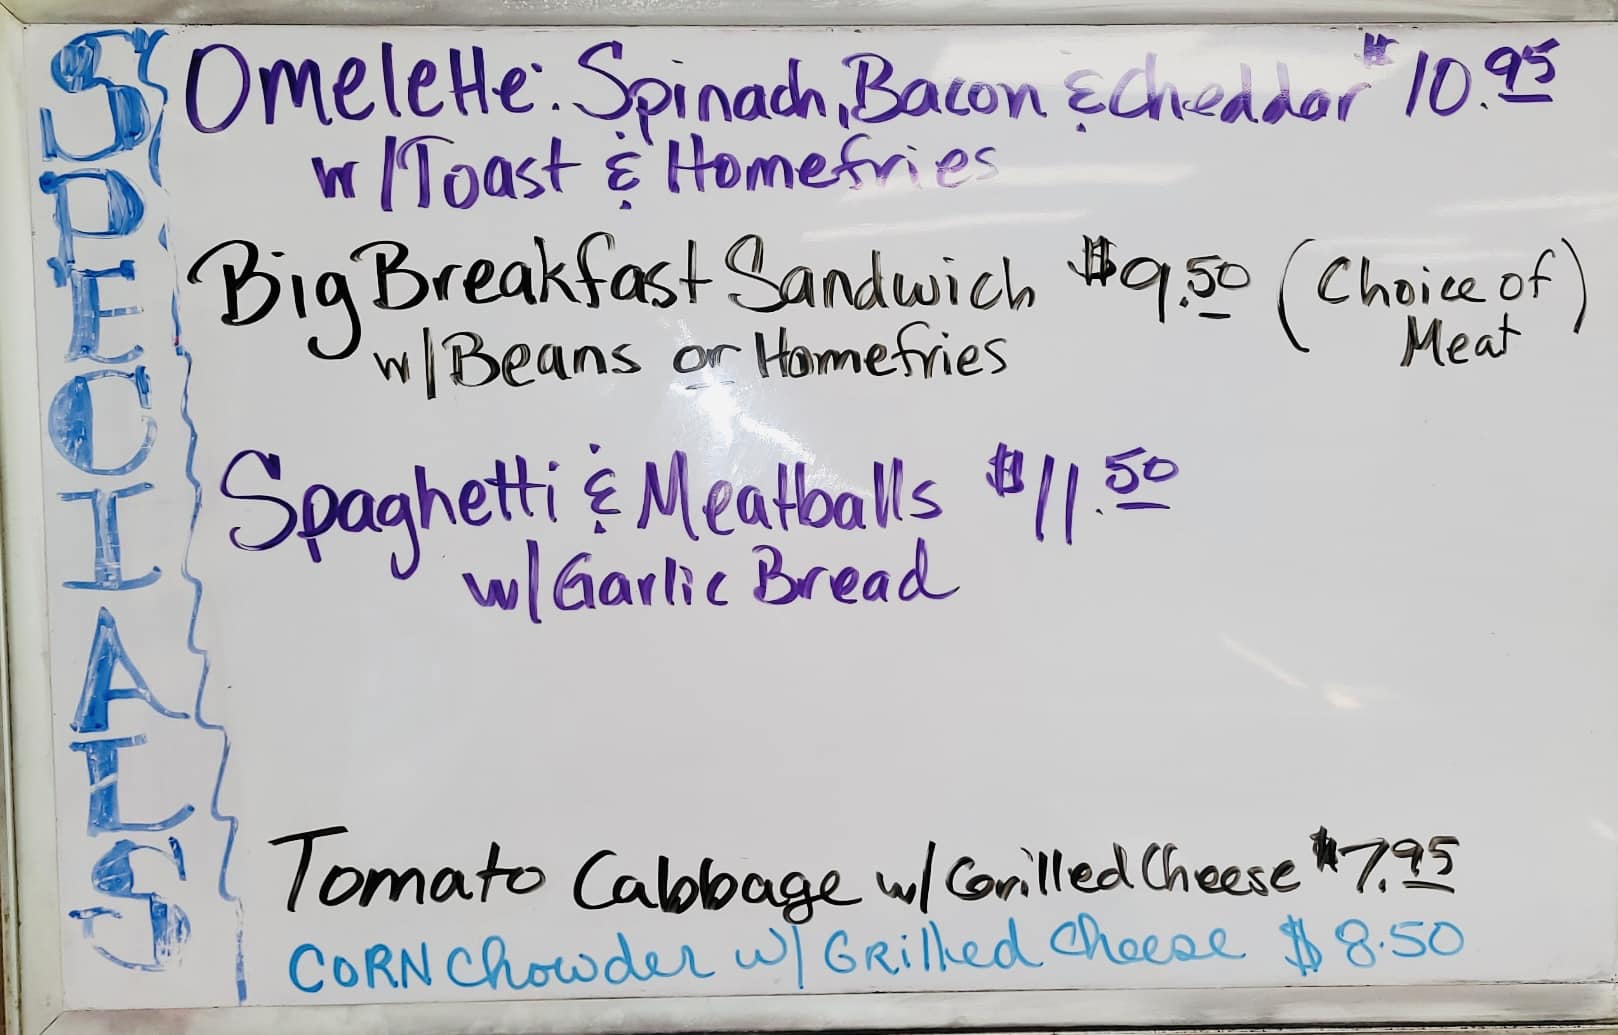 SPECIALS
Omelette: Spinach, Bacon & Cheddar $10.95
w/Toast & Homefries
Big Breakfast Sandwich $9.50 (Choice of Meat)
w/Beans or Homefries
Spaghetti & Meatballs $11.50
w/Garlic Bread
Tomato Cabbage w/ Grilled Cheese $7.95
CORN Chowder w/ GRilled Cheese $8.50